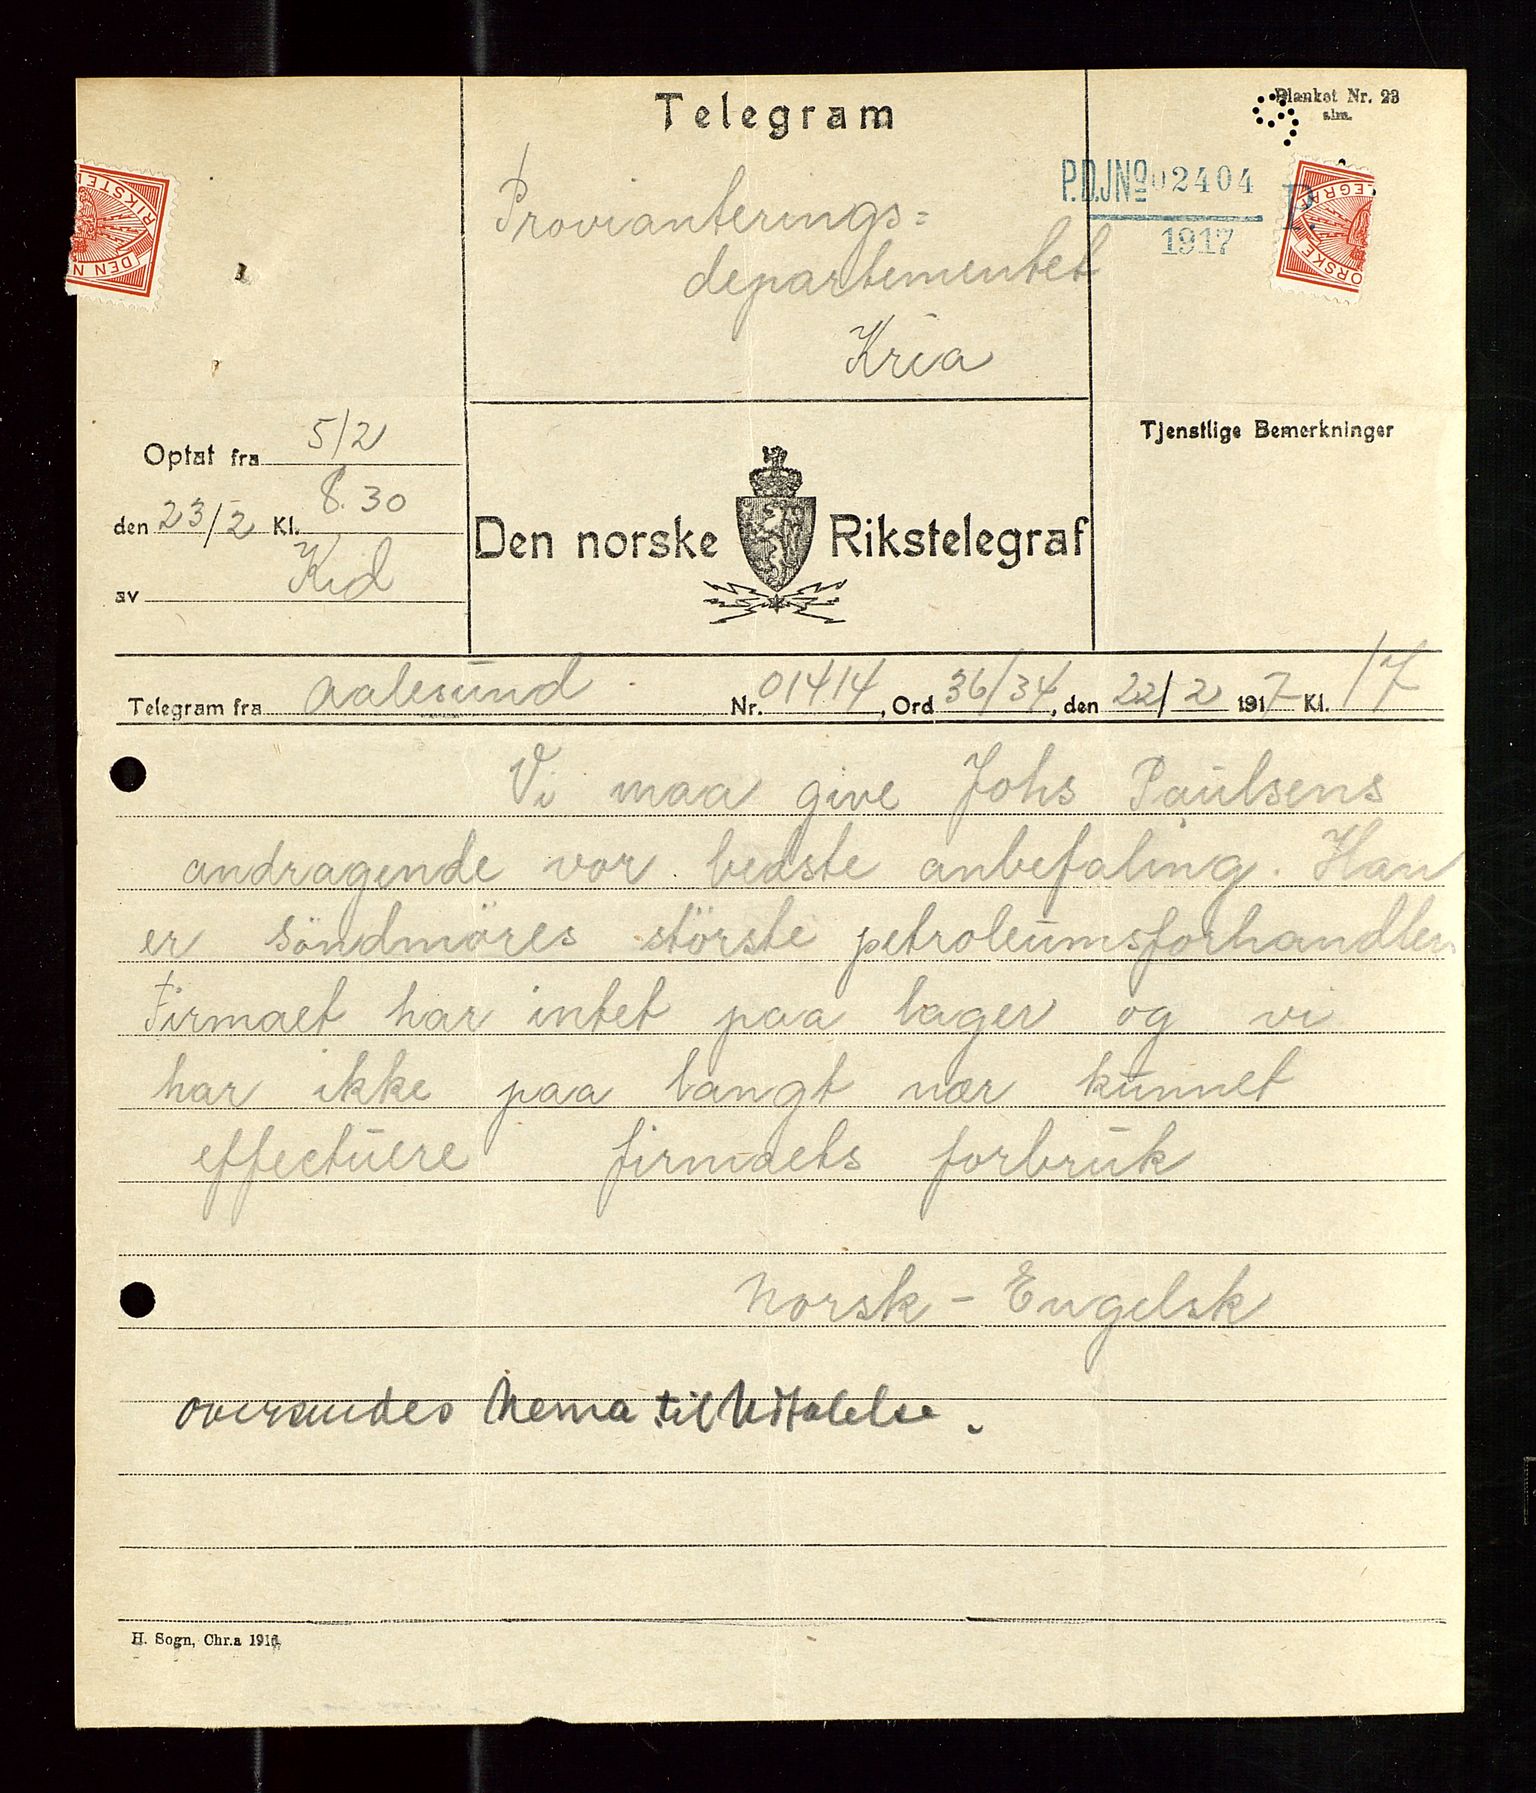 Blanket Nr. 23
alm.
Telegram
P.D.JNº 02404
1917
P.
Provianterings=
departementet
Kria
Optat fra 5/2
den 23/2 Kl. 8.30
av Kid
Den norske Rikstelegraf
Tjenstlige Bemerkninger
Telegram fra Aalesund Nr. 01414, Ord 36/34, den 22/2 1917 Kl. 17
Vi maa give Johs Paulsens
andragende vor bedste anbefaling. Han
er söndmöres störste petroleumsforhandler
Firmaet har intet paa lager og vi
har ikke paa langt nær kunnet
effectuere firmaets forbruk
Norsk - Engelsk
oversendes Nema til Uttalelse.
H. Sogn, Chr.a 1916